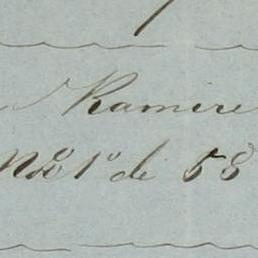 Ramire
Nº 1º de 58